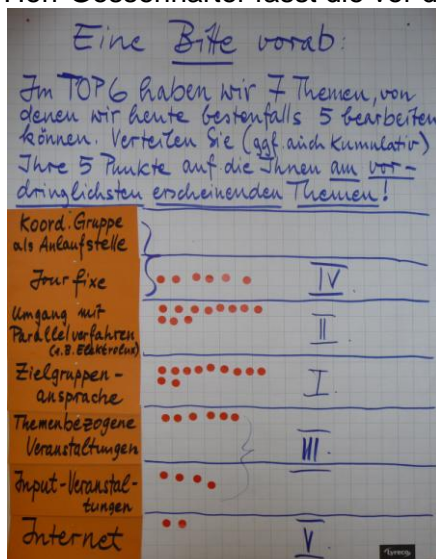 Eine Bitte vorab:
Im TOP6 haben wir 7 Themen, von
denen wir heute bestenfalls 5 bearbeiten
können. Verteilen Sie (ggf. auch kumulativ)
Ihre 5 Punkte auf die Ihnen am vor-
dringlichsten erscheinenden Themen!
Koord. Gruppe
als Anlaufstelle
Jour fixe
IV
Umgang mit
Parallelverfahren
(z.B. Elektrobus)
II
Zielgruppen-
ansprache
I
Themenbezogene
Veranstaltungen
III
Input-Veranstal-
tungen
Internet
V